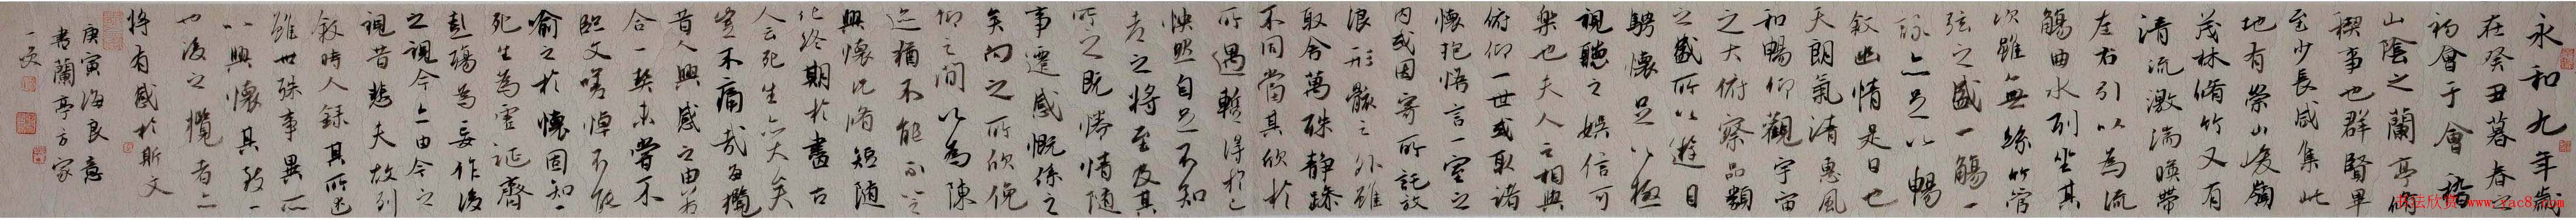 永和九年歲
在癸丑暮春之
初會于會稽
山陰之蘭亭脩
稧事也群賢畢
至少長咸集此
地有崇山峻領
茂林脩竹又有
清流激湍暎帶
左右引以為流
觴曲水列坐其
次雖無絲竹管
弦之盛一觴一
詠亦足以暢
敘幽情是日也
天朗氣清惠風
和暢仰觀宇宙
之大俯察品類
之盛所以遊目
騁懷足以極
視聽之娛信可
樂也夫人之相與
俯仰一世或取諸
懷抱悟言一室之
內或因寄所託放
浪形骸之外雖
取舍萬殊靜躁
不同當其欣於
所遇暫得於己
怏然自足不知
老之將至及其
所之既惓情隨
事遷感慨係之
矣向之所欣俛
仰之間以為陳
迹猶不能不以之
興懷況脩短隨
化終期於盡古
人云死生亦大矣
豈不痛哉每攬
昔人興感之由若
合一契未嘗不
臨文嗟悼不能
喻之於懷固知一
死生為虛誕齊
彭殤為妄作後
之視今亦由今之
視昔悲夫故列
敘時人錄其所述
雖世殊事異所
以興懷其致一
也後之攬者亦
將有感於斯文
庚寅海良意
書蘭亭方家
一笑
书法欣赏 www.yac8.com